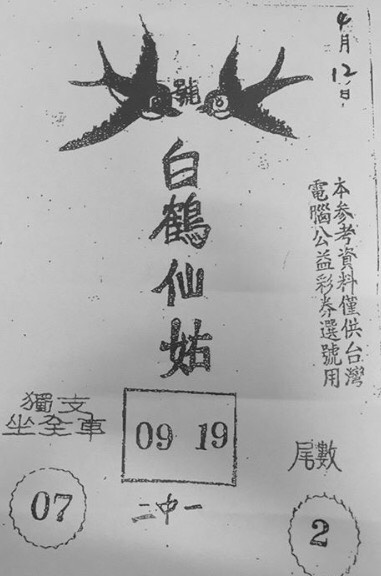 4月12日
號
白鶴仙姑
本參考資料僅供台灣
電腦公益彩券選號用
獨支
坐全車
07
09 19
二中一
尾數
2